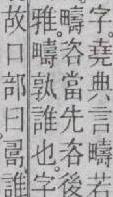 字。堯典言疇若
雅。疇咨當先咨後
疇孰誰也。字
故口部曰㖾誰